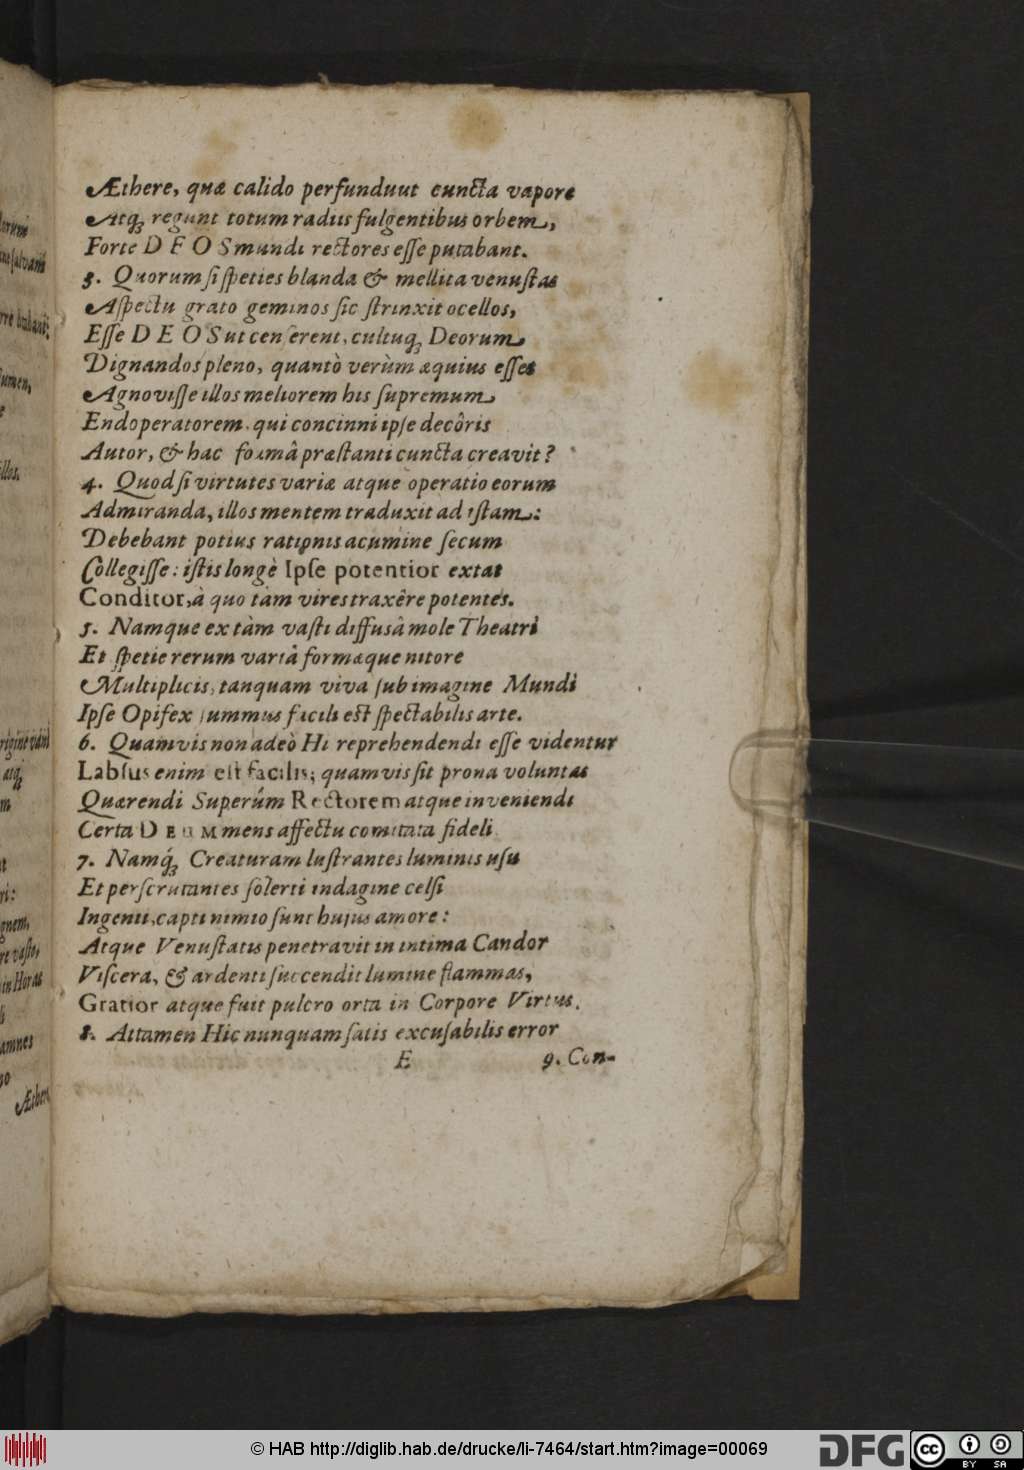 Æthere, quæ calido perfunduut cuncta vapore
Atq; regunt totum radiis fulgentibus orbem,
Forte DEOS mundi rectores esse putabant.
3. Quorum si speties blanda & mellita venustas
Aspectu grato geminos sic strinxit ocellos,
Esse DEOS ut censerent, cultuq; Deorum
Dignandos pleno, quantò verùm æquius esset
Agnovisse illos meliorem his supremum
Endoperatorem, qui concinni ipse decôris
Autor, & hac formâ præstanti cuncta creavit?
4. Quod si virtutes variæ atque operatio eorum
Admiranda, illos mentem traduxit ad istam:
Debebant potius rationis acumine secum
Collegisse: istis longè Ipse potentior extat
Conditor, à quo tàm vires traxêre potentes.
5. Namque ex tàm vasti diffusâ mole Theatri
Et spetie rerum variâ formæque nitore
Multiplicis, tanquam viva sub imagine Mundi
Ipse Opifex summus facili est spectabilis arte.
6. Quamvis non adeò Hi reprehendendi esse videntur
Labsus enim est facilis; quamvis sit prona voluntas
Quærendi Superûm Rectorem atque inveniendi
Certa DEUM mens affectu comitata fideli.
7. Namq́; Creaturam lustrantes luminis usu
Et perscrutantes solerti indagine celsi
Ingenii, capti nimio sunt hujus amore:
Atque Venustatis penetravit in intima Candor
Viscera, & ardenti succendit lumine flammas,
Gratior atque fuit pulcro orta in Corpore Virtus.
8. Attamen Hic nunquam satis excusabilis error
E 9. Con-
© HAB http://diglib.hab.de/drucke/li-7464/start.htm?image=00069
DFG
cc BY SA